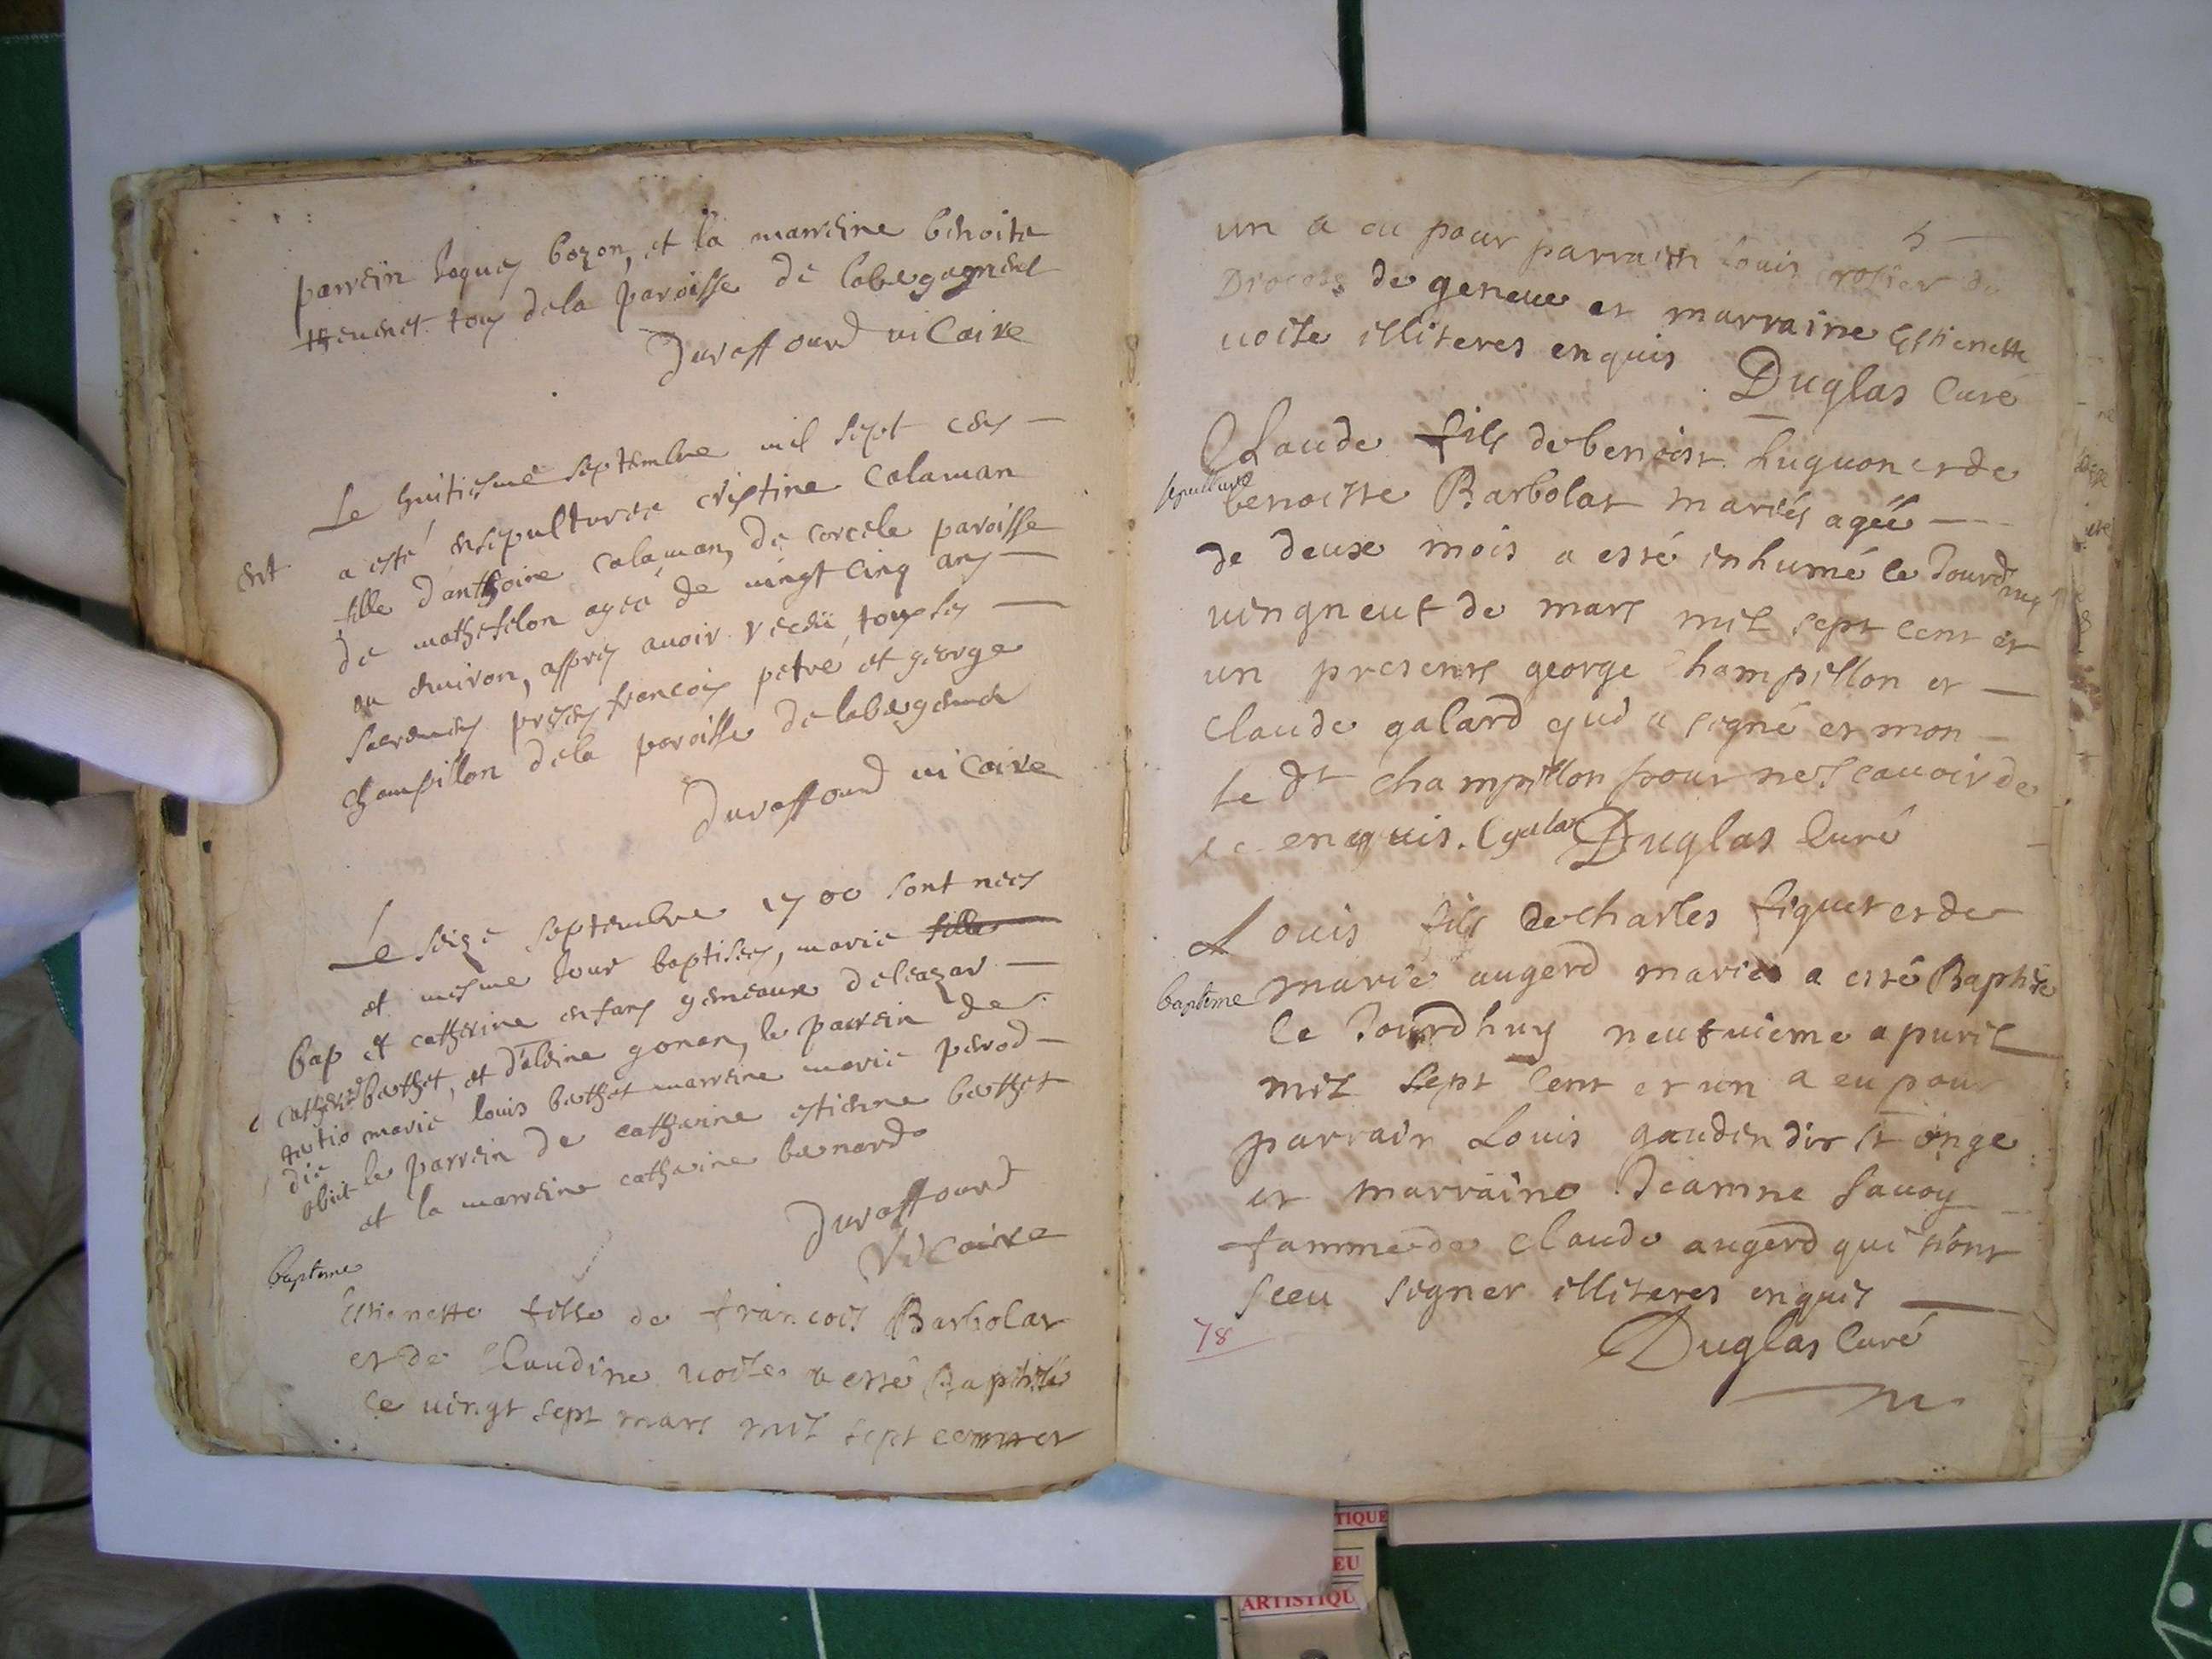 parrein Jaques bozon, et la marreine benoite
theuenet tous dela paroisse de labergement
Duraffourd vicaire
Le huitiesme septembre mil sept cens
ent
a esté ensepulturee cristine calaman
fille d'anthoine calaman, de corcele paroisse
de mathefelon agéé de vingt cinq ans
ou enuiron, appres auoir receu tous les
sacremens presens francois petré et george
champillon dela paroisse de labergement
Duraffourd vicaire
Le seize septembre 1700 sont nees
et mesme Jour baptisees, marie fille
bap et catherine enfans gemeaux deleazar
berthet, et d'eleine gonen, le parrein de
catherine
tertio marie louis berthet marreine marie perod
die
obiit le parrein de catherine estienne berthet
et la marreine catherine bernarde
Duraffourd
Vicaire
baptime
Estienette fille de francois Barbolat
et de Claudine uoite a esté Baptisée
le uingt sept mars mil sept cent et
5
un a eu pour parrain louis rosier du
Diocese de geneue et marraine Estienette
uoite illiteres enquis Duglas Curé
Claude fils de benoist huguon et de
sepulture
benoitte Barbolat mariés agéé
de deux mois a esté inhumé le Jourdhuy
uingneuf de mars mil sept cent et
un presents george Champillon et
Claude galard qui a signé et non
le dt champillon pour ne scauoir de
ce enquis. C galar Duglas Curé
Louis fils de charles figuet et de
baptime
marie augerd mariés a esté Baptisé
le Jourdhuy neufuieme apuril
mil sept Cent et un a eu pour
parrain Louis gaudin dit st onge
et marraine Jeamne sauoy
famme de Claude augerd qui n'ont
sceu signer illiteres enquis
78
Duglas Curé
TIQUE
EU
ARTISTIQU